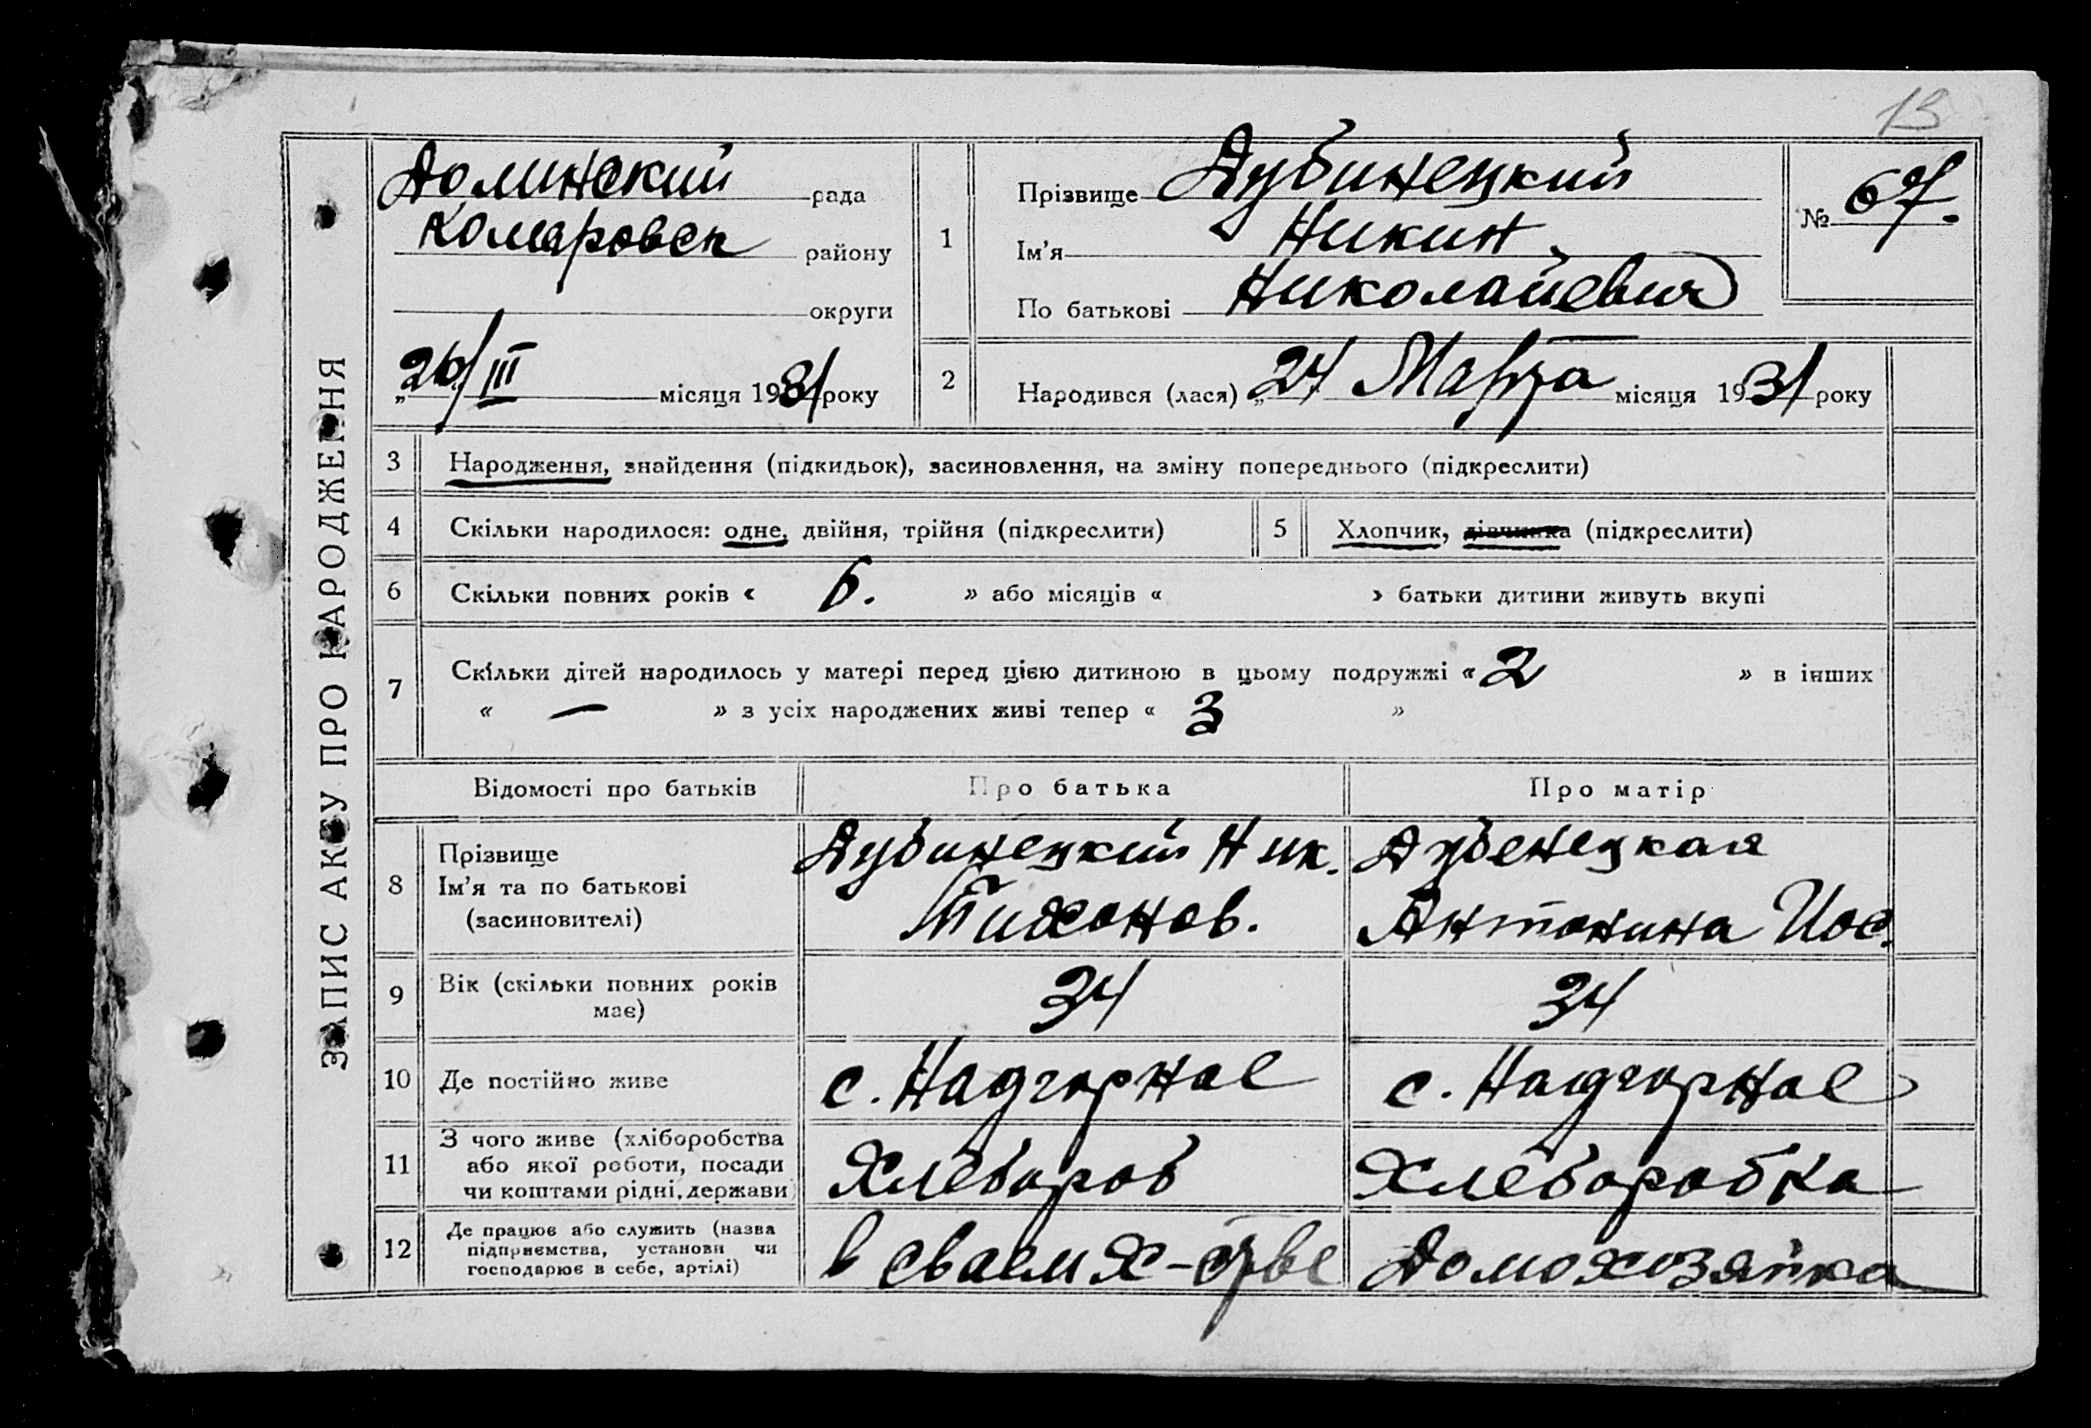 13
ЗАПИС АКТУ ПРО НАРОДЖЕННЯ
Долинский рада
Комаровск району
округи
„26/III місяця 1931 року
1
Прізвище Дубинецкий
Ім'я Никин
По батькові Николаевич
№ 67.
2
Народився (лася) „24 Марта місяця 1931 року
3 Народження, знайдення (підкидьок), засиновлення, на зміну попереднього (підкреслити)
4 Скільки народилося: одне, двійня, трійня (підкреслити)
5 Хлопчик, дівчинка (підкреслити)
6 Скільки повних років « 6. » або місяців « » батьки дитини живуть вкупі
7 Скільки дітей народилось у матері перед цією дитиною в цьому подружжі « 2 » в інших
« — » з усіх народжених живі тепер « 3 »
Відомості про батьків Про батька Про матір
8 Прізвище
Ім'я та по батькові
(засиновителі)
Дубинецкий Ник.
Тихонов.
Дубенецкая
Антонина Иос.
9 Вік (скільки повних років
має)
34
34
10 Де постійно живе с. Надгорное с. Надгорное
11 З чого живе (хліборобства
або якої роботи, посади
чи коштами рідні, держави
Хлебороб
Хлеборобка
12 Де працює або служить (назва
підприємства, установи чи
господарює в себе, артілі)
в сваем х-стве
Домохозяйка